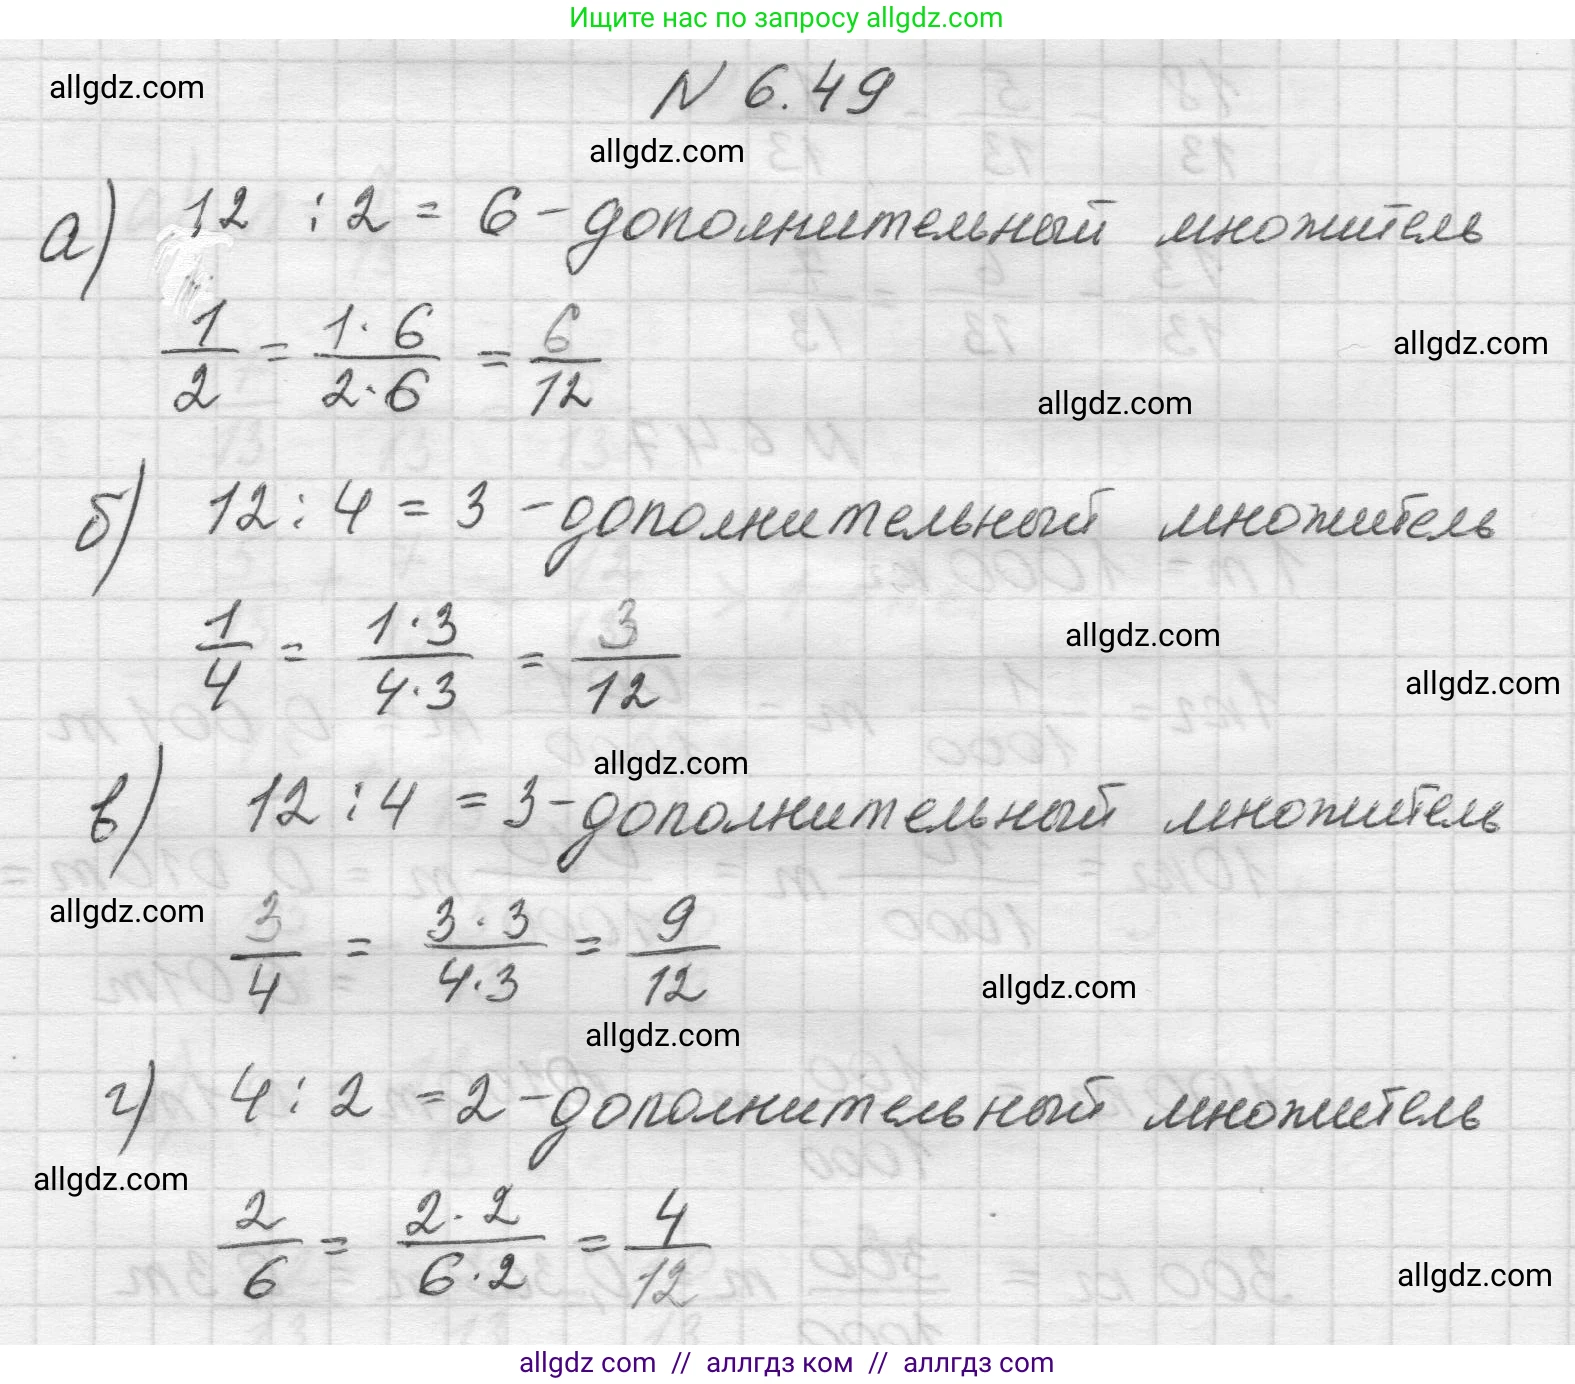 Ищите нас по запросу allgdz.com
allgdz.com
N 6.49
allgdz.com
а) 12 : 2 = 6 - дополнительный множитель
1/2 = 1·6/2·6 = 6/12
allgdz.com
allgdz.com
б) 12 : 4 = 3 - дополнительный множитель
1/4 = 1·3/4·3 = 3/12
allgdz.com
allgdz.com
allgdz.com
в) 12 : 4 = 3 - дополнительный множитель
allgdz.com
3/4 = 3·3/4·3 = 9/12
allgdz.com
allgdz.com
г) 4 : 2 = 2 - дополнительный множитель
allgdz.com
2/6 = 2·2/6·2 = 4/12
allgdz.com
allgdz com // аллгдз ком // аллгдз com